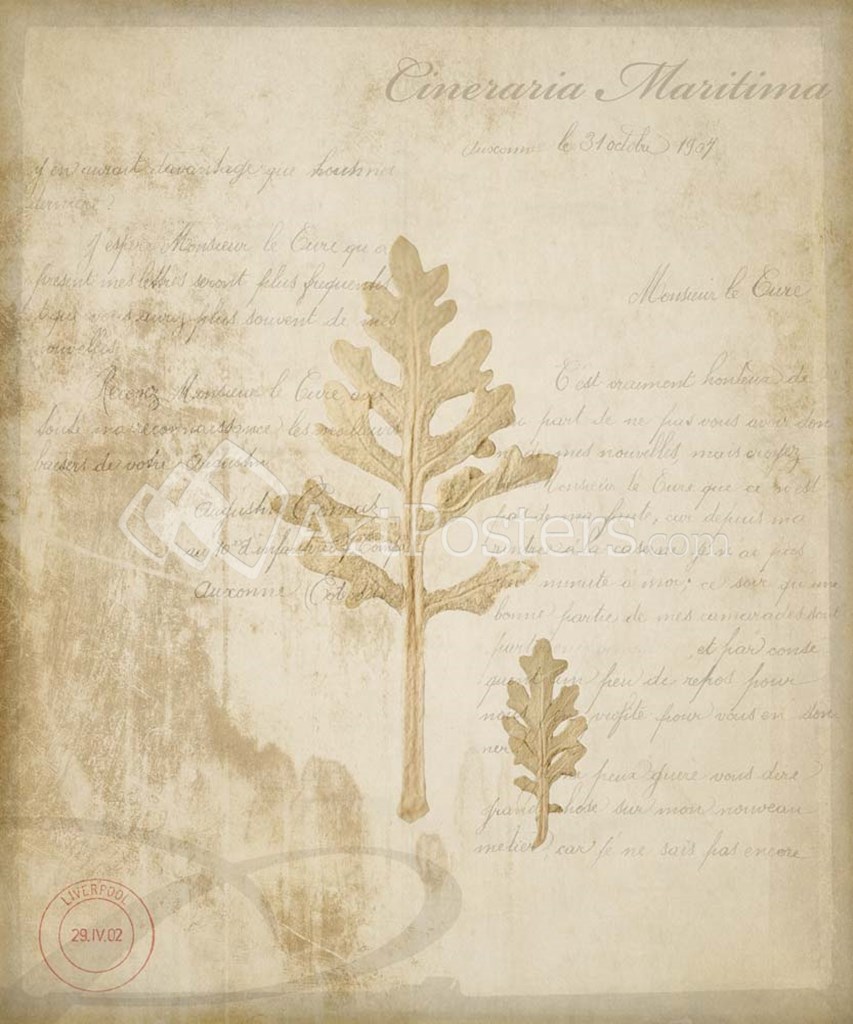 Cineraria Maritima
le 31 octobre 1907
y en aurait davantage que
dernière?
J'espère Monsieur le Cure que a
present mes lettres seront plus frequent
que vous aurez plus souvent de mes
nouvelles.
Recevez Monsieur le Cure avec
toute ma reconnaissance les meilleurs
baisers de votre Augustin
Augustin
au 10me d'infanterie
Auxonne (Cot
Monsieur le Cure
C'est vraiment honteux de
ma part de ne pas vous avoir don
mes nouvelles, mais croyez
Monsieur le Cure que ce n'est
pas de ma faute, car depuis ma
caserne je n'ai pas
minute à moi; ce soir qu'une
bonne partie de mes camarades sont
et par conse
quent un peu de repos pour
profite pour vous en don
ner
peux guère vous dire
grand chose sur mon nouveau
metier car je ne sais pas encore
ArtPosters.com
LIVERPOOL
29.IV.02